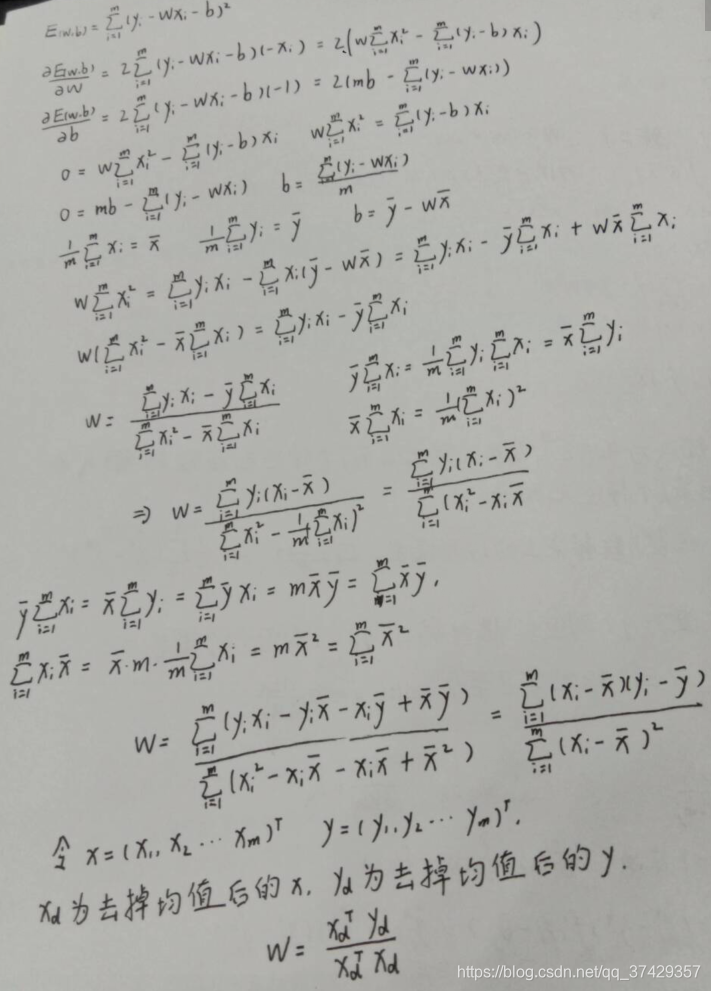 E(w,b) = ∑_{i=1}^{m} (y_i - wx_i - b)²
∂E(w,b)/∂w = 2∑_{i=1}^{m} (y_i - wx_i - b)(-x_i) = 2(w∑_{i=1}^{m} x_i² - ∑_{i=1}^{m} (y_i - b)x_i)
∂E(w,b)/∂b = 2∑_{i=1}^{m} (y_i - wx_i - b)(-1) = 2(mb - ∑_{i=1}^{m} (y_i - wx_i))
0 = w∑_{i=1}^{m} x_i² - ∑_{i=1}^{m} (y_i - b)x_i    w∑_{i=1}^{m} x_i² = ∑_{i=1}^{m} (y_i - b)x_i
0 = mb - ∑_{i=1}^{m} (y_i - wx_i)    b = ∑_{i=1}^{m} (y_i - wx_i) / m
1/m ∑_{i=1}^{m} x_i = x̄    1/m ∑_{i=1}^{m} y_i = ȳ    b = ȳ - wx̄
w∑_{i=1}^{m} x_i² = ∑_{i=1}^{m} y_i x_i - ∑_{i=1}^{m} x_i(ȳ - wx̄) = ∑_{i=1}^{m} y_i x_i - ȳ∑_{i=1}^{m} x_i + wx̄∑_{i=1}^{m} x_i
w(∑_{i=1}^{m} x_i² - x̄∑_{i=1}^{m} x_i) = ∑_{i=1}^{m} y_i x_i - ȳ∑_{i=1}^{m} x_i
w = (∑_{i=1}^{m} y_i x_i - ȳ∑_{i=1}^{m} x_i) / (∑_{i=1}^{m} x_i² - x̄∑_{i=1}^{m} x_i)
ȳ∑_{i=1}^{m} x_i = 1/m ∑_{i=1}^{m} y_i ∑_{i=1}^{m} x_i = x̄∑_{i=1}^{m} y_i
x̄∑_{i=1}^{m} x_i = 1/m (∑_{i=1}^{m} x_i)²
⇒ w = ∑_{i=1}^{m} y_i(x_i - x̄) / (∑_{i=1}^{m} x_i² - 1/m(∑_{i=1}^{m} x_i)²) = ∑_{i=1}^{m} y_i(x_i - x̄) / ∑_{i=1}^{m} (x_i² - x_i x̄
ȳ∑_{i=1}^{m} x_i = x̄∑_{i=1}^{m} y_i = ∑_{i=1}^{m} ȳ x_i = m x̄ ȳ = ∑_{i=1}^{m} x̄ ȳ,
∑_{i=1}^{m} x_i x̄ = x̄·m·1/m ∑_{i=1}^{m} x_i = m x̄² = ∑_{i=1}^{m} x̄²
w = ∑_{i=1}^{m} (y_i x_i - y_i x̄ - x_i ȳ + x̄ ȳ) / ∑_{i=1}^{m} (x_i² - x_i x̄ - x_i x̄ + x̄²) = ∑_{i=1}^{m} (x_i - x̄)(y_i - ȳ) / ∑_{i=1}^{m} (x_i - x̄)²
令 x = (x₁, x₂ ⋯ x_m)^T    y = (y₁, y₂ ⋯ y_m)^T,
x_d 为去掉均值后的 x, y_d 为去掉均值后的 y.
w = x_d^T y_d / x_d^T x_d
https://blog.csdn.net/qq_37429357